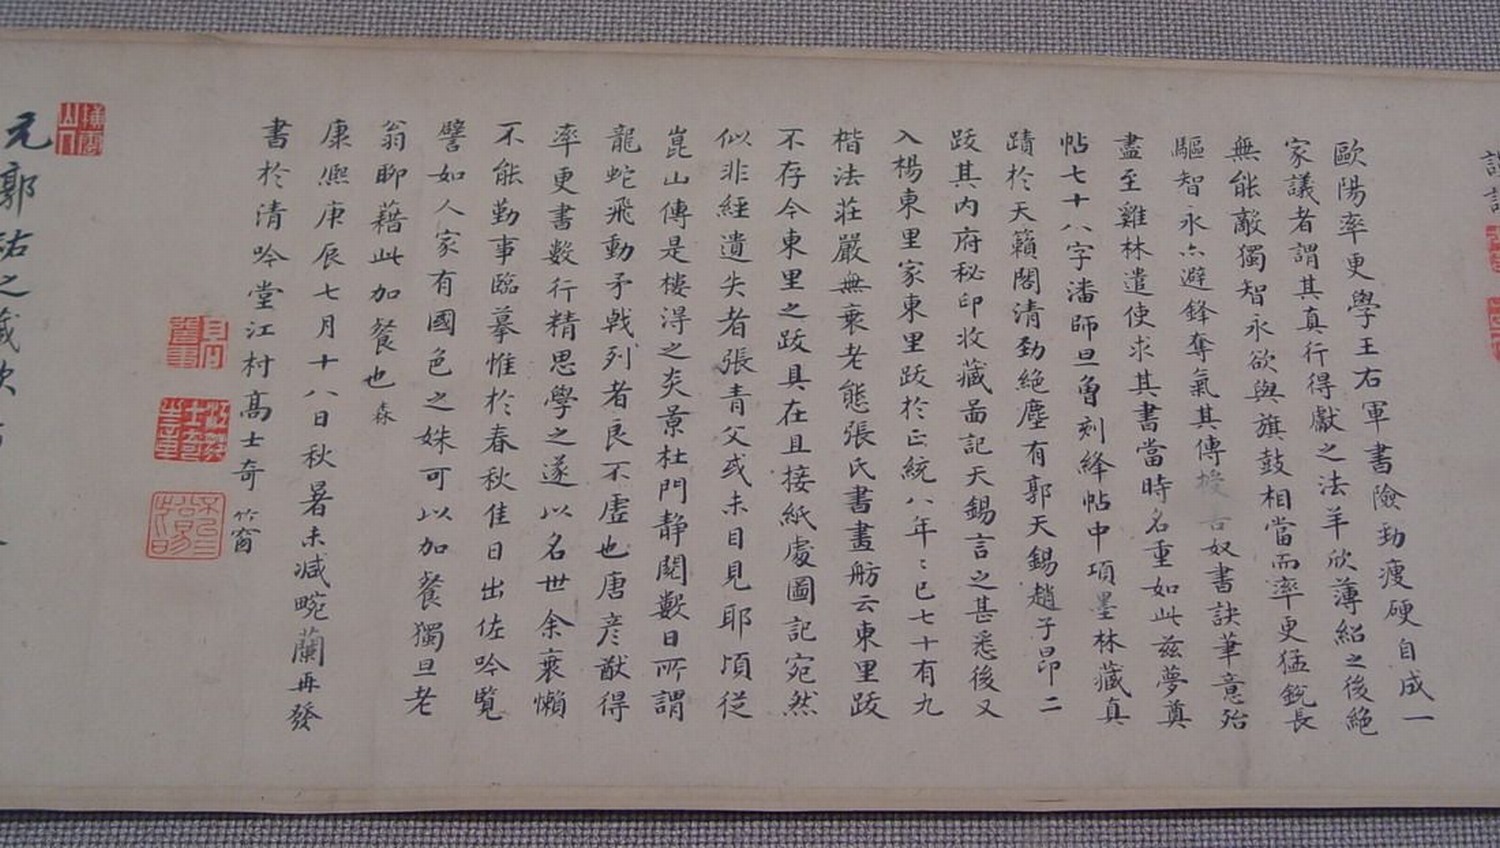 歐陽率更學王右軍書險勁瘦硬自成一
家議者謂其真行得獻之法羊欣薄紹之後絕
無能敵獨智永欲與旗鼓相當而率更猛銳長
驅智永亦避鋒奪氣其傳授善奴書訣筆意殆
盡至雞林遣使求其書當時名重如此茲夢奠
帖七十八字潘師旦曾刻絳帖中項墨林藏真
蹟於天籟閣清勁絕塵有郭天錫趙子昂二
跋其內府秘印收藏畨記天錫言之甚悉後又
入楊東里家東里跋於正統八年〻已七十有九
楷法莊嚴無衰老態張氏書畫舫云東里跋
不存今東里之跋具在且接紙處圖記宛然
似非經遺失者張青父或未目見耶頃從
崑山傳是樓得之炎景杜門靜閱數日所謂
龍蛇飛動矛戟列者良不虛也唐彥猷得
率更書數行精思學之遂以名世余衰懶
不能勤事臨摹惟於春秋佳日出佐吟覽
譬如人家有國色之姝可以加餐獨旦老
翁聊藉此加餐也 森
康熙庚辰七月十八日秋暑未減畹蘭再發
書於清吟堂江村高士奇 竹窗
元郭祐之藏次